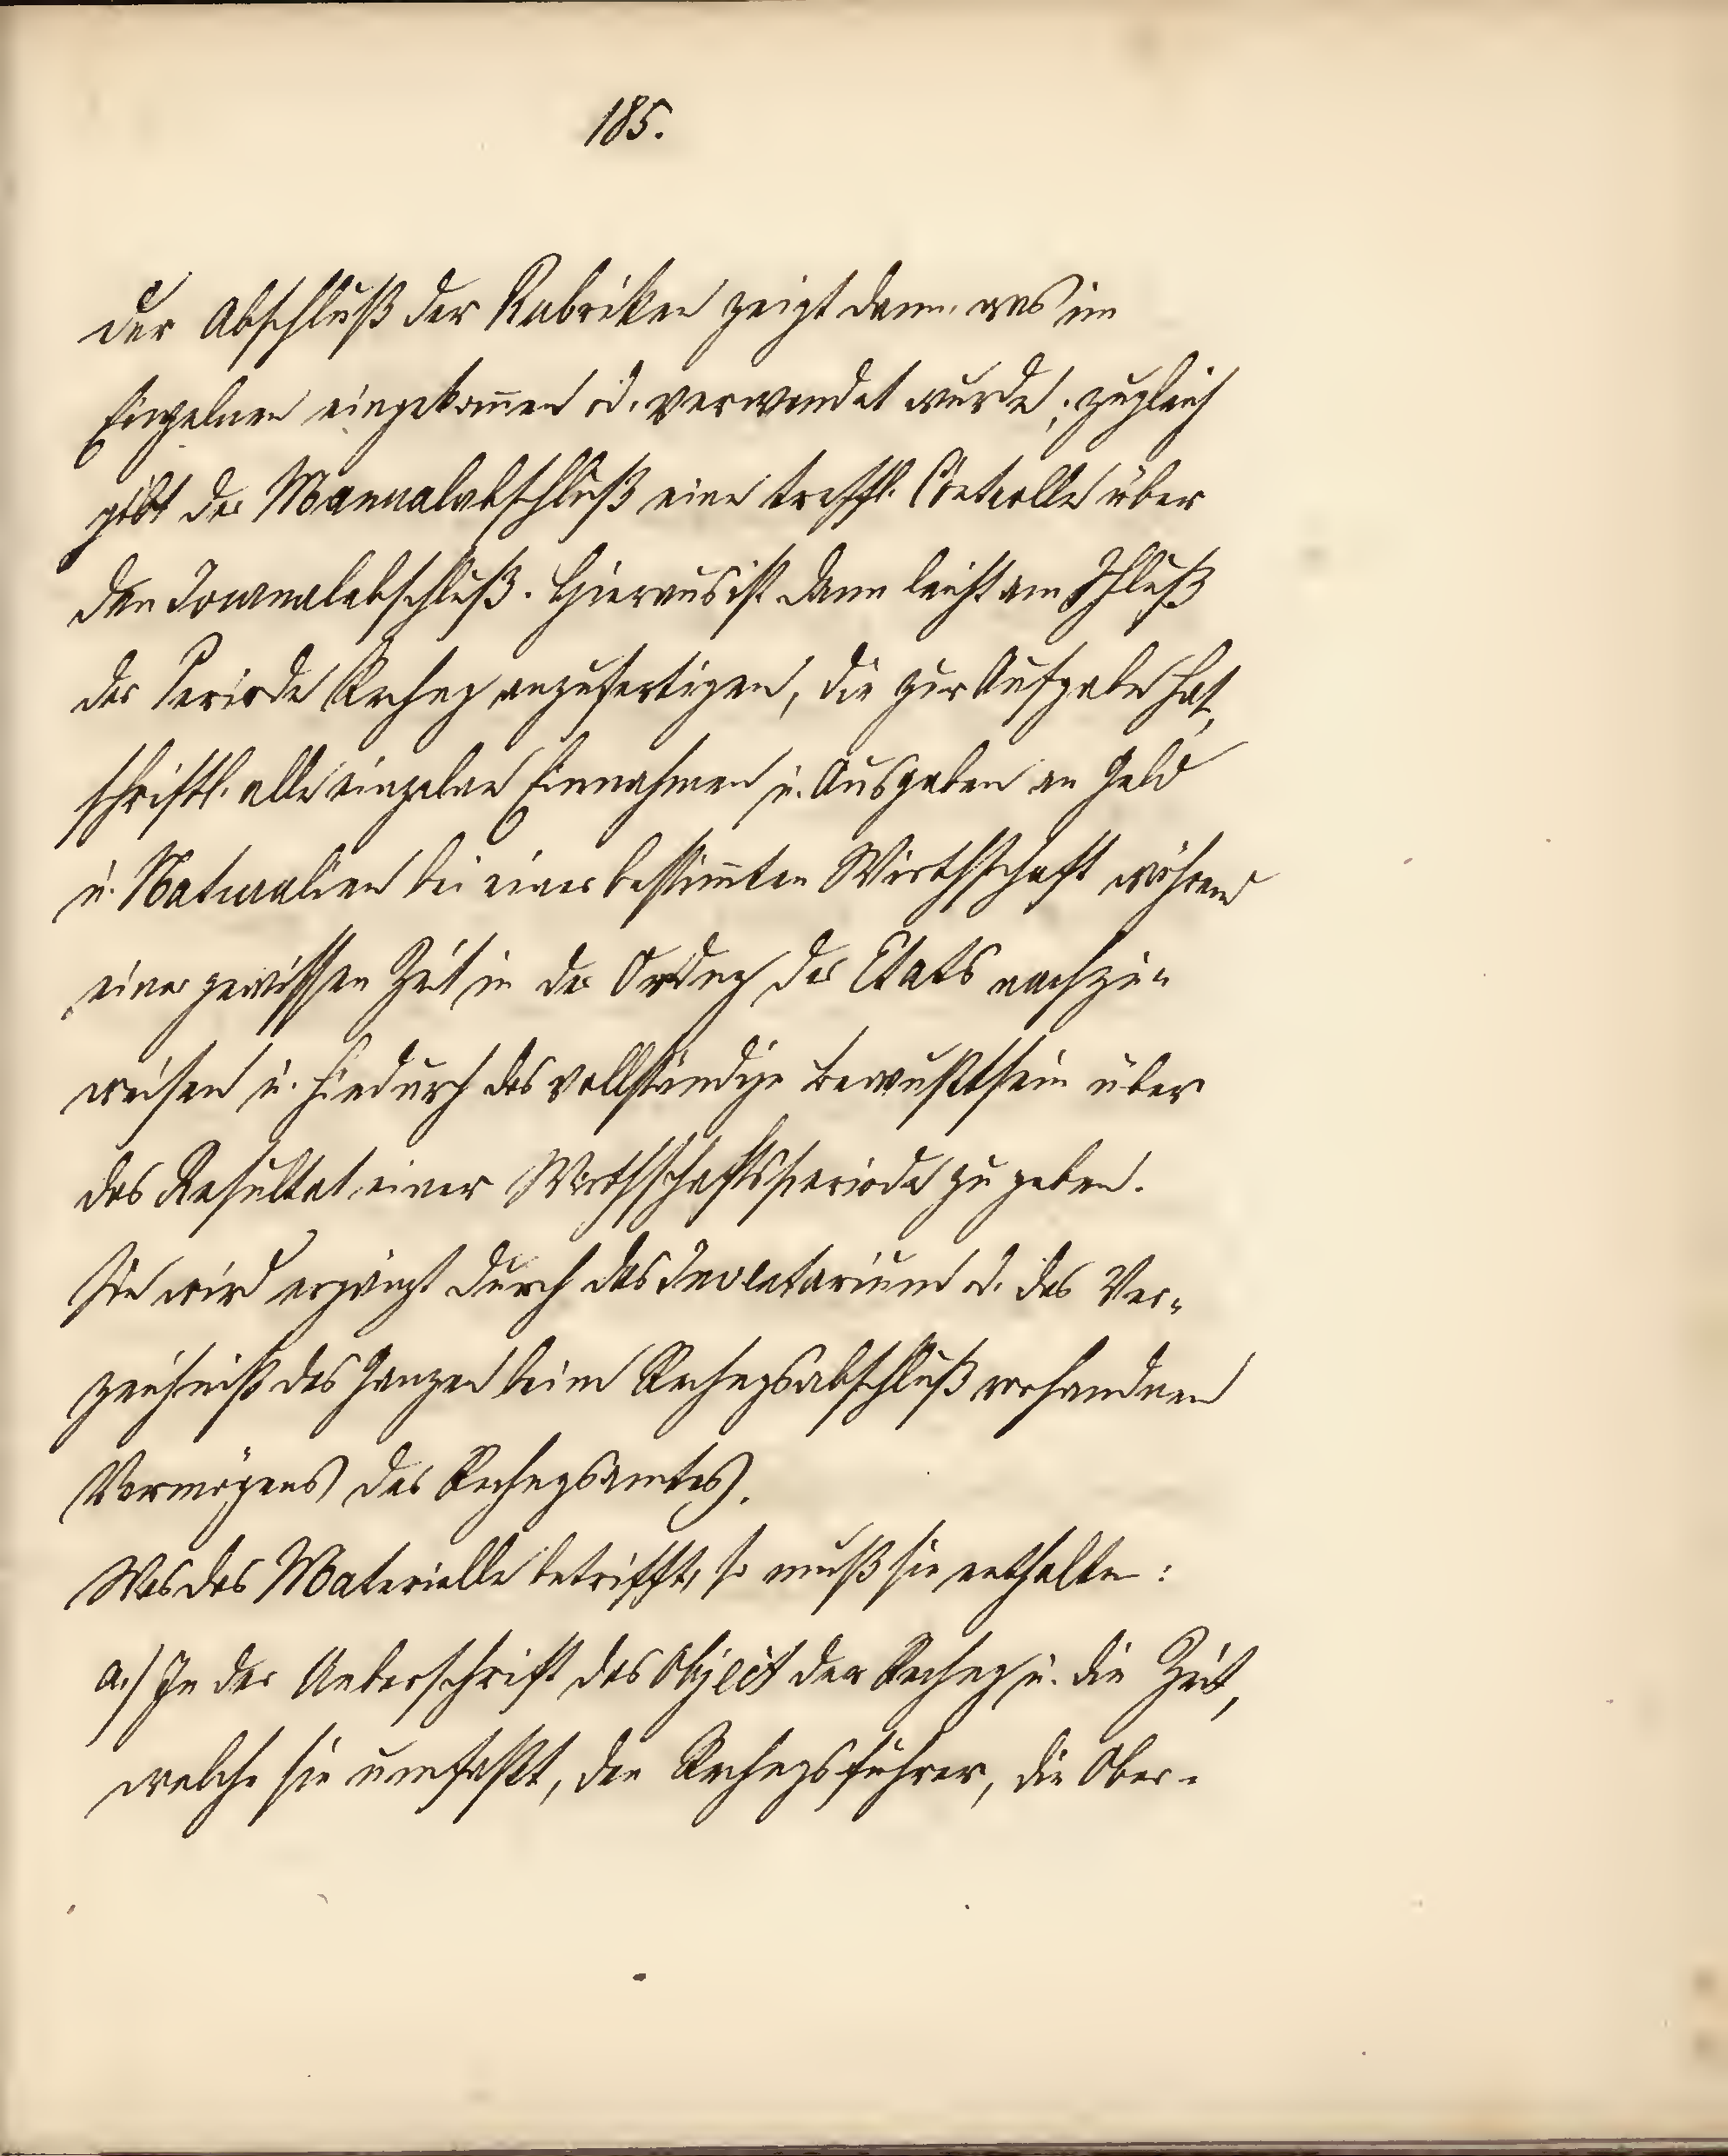 185.
Der Abschluß der Rubriken zeigt dann, was im
Einzelnen eingekom̄en od. verwendet wurde; zugleich
gibt der Manualabschluß eine treffl. Controlle über
den Journalabschluß. Hieraus ist dann leicht am Schluß
der Periode Rechng anzufertigen, die zur Aufgabe hat,
schriftl. alle einzelne Einnahmen u. Ausgaben an Geld
u. Naturalien bei einer bestim̄ten Wirthschaft während
einer gewissen Zeit in der Ordng des Etats nachzu-
weisen u. hiedurch das vollständige Bewußtsein über
das Resultat einer Wirthschaftsperiode zu geben.
Sie wird ergänzt durch das Inventarium od. das Ver-
zeichniß des Ganzen beim Rechngsabschluß vorhandnen
Vermögens des Rechngsamtes.
Was das Materielle betrifft, so muß sie enthalten:
a.) In der Ueberschrift das Objekt der Rechng u. die Zeit,
welche sie umfaßt, den Rechngsführer, die Ober-